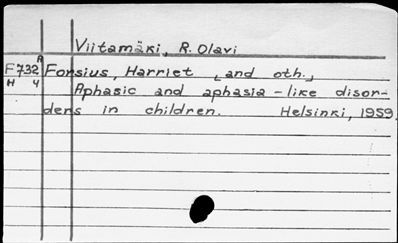 Viitamäki, R. Olavi
A
F732 Forsius, Harriet [and oth.]
H 4 Aphasic and aphasia-like disor-
ders in children. Helsinki, 1959.